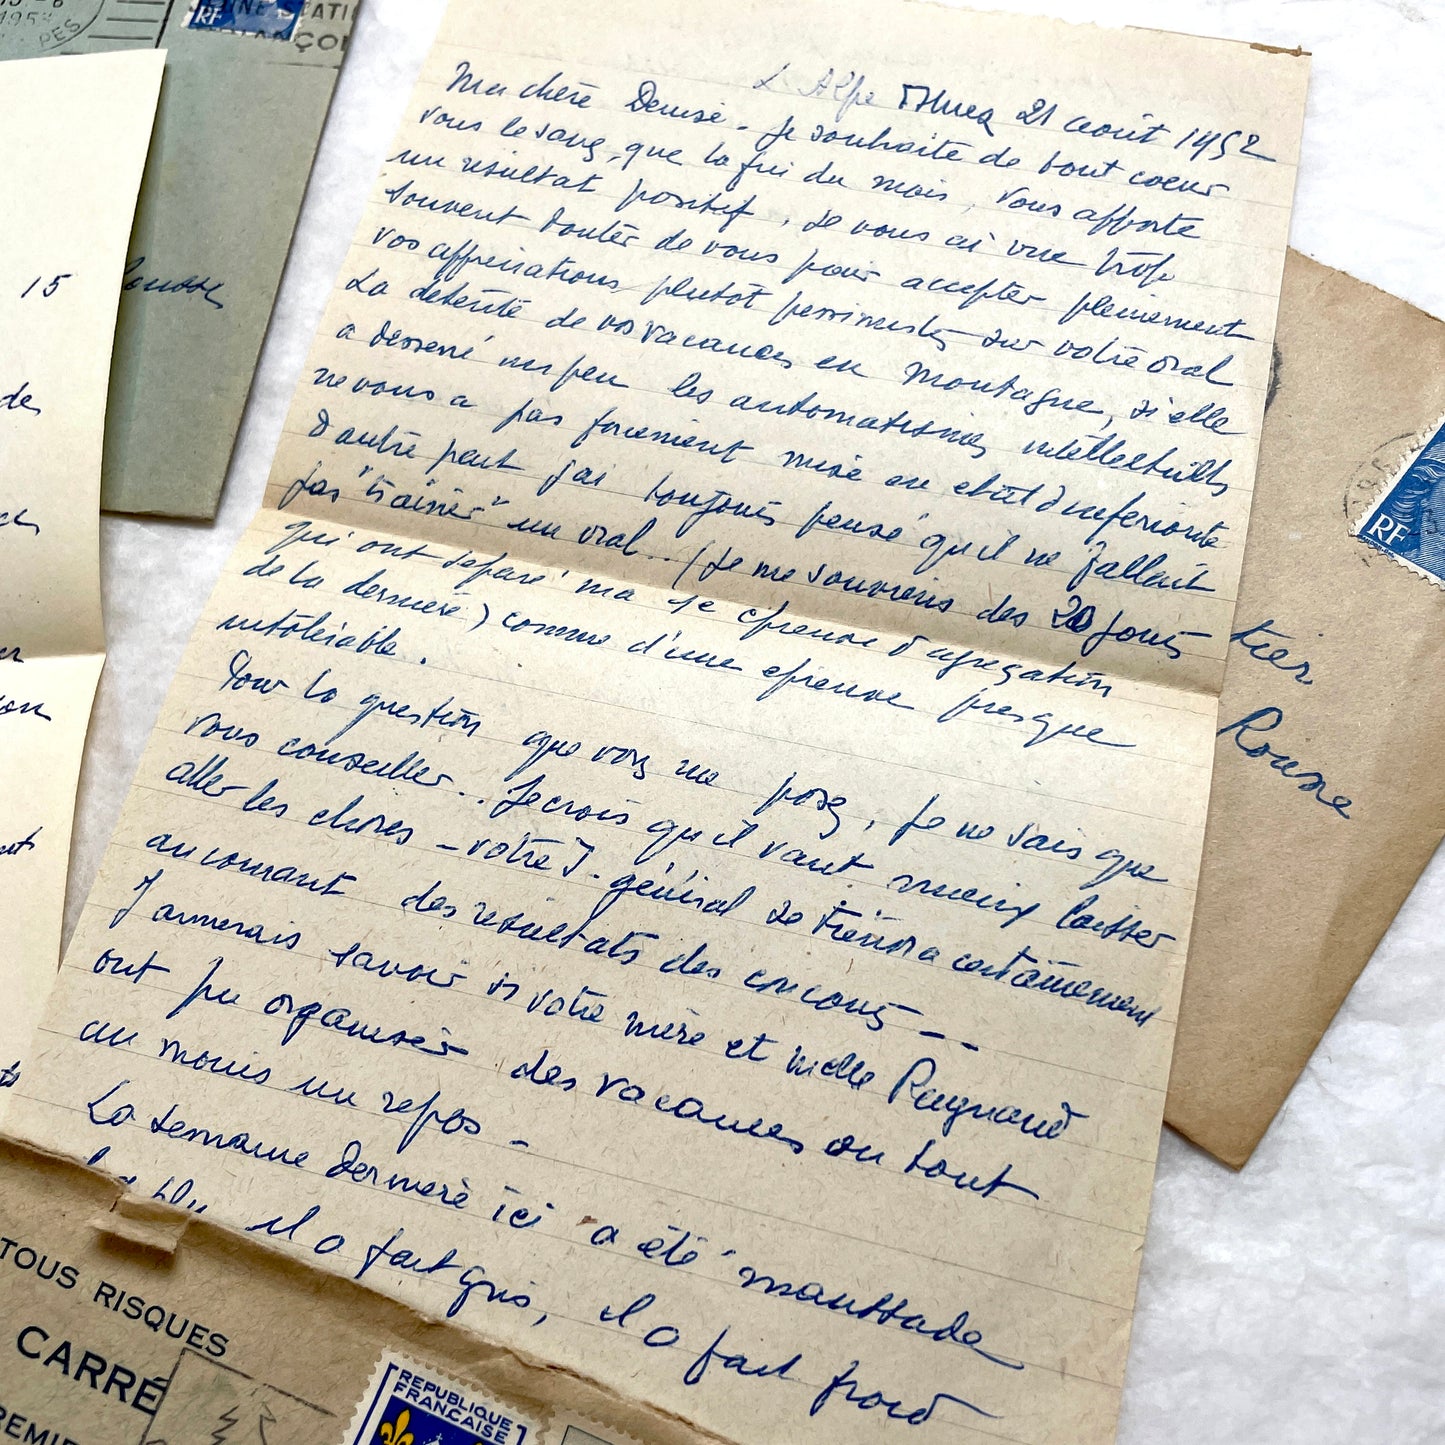 L'Alpe d'Huez 21 août 1952
Ma chère Denise. Je souhaite de tout coeur
vous le savez, que la fin du mois, vous apporte
un résultat positif, Je vous ai vue trop
souvent douter de vous pour accepter pleinement
vos appréciations plutôt pessimistes sur votre oral
La détente de vos vacances en montagne, si elle
a desserré un peu les automatismes intellectuels
ne vous a pas forcément mise en état d'infériorité
D'autre part j'ai toujours pensé qu'il ne fallait
pas "traîner" un oral... (Je me souviens des 20 jours
qui ont séparé ma 1e épreuve d'agrégation
de la dernière) comme d'une épreuve presque
intolérable.
Pour la question que vous me posez, je ne sais que
vous conseiller... Je crois qu'il vaut mieux laisser
aller les choses - votre I. général se tiendra certainement
au courant des résultats des concours - -
J'aimerais savoir si votre mère et Melle Raynaud
ont pu organiser des vacances ou tout
au moins un repos -
La semaine dernière ici a été maussade
il a fait gris, il a fait froid
15
de
TOUS RISQUES
CARRÉ
REPUBLIQUE
FRANÇAISE
RF
RF
tier
Rousse